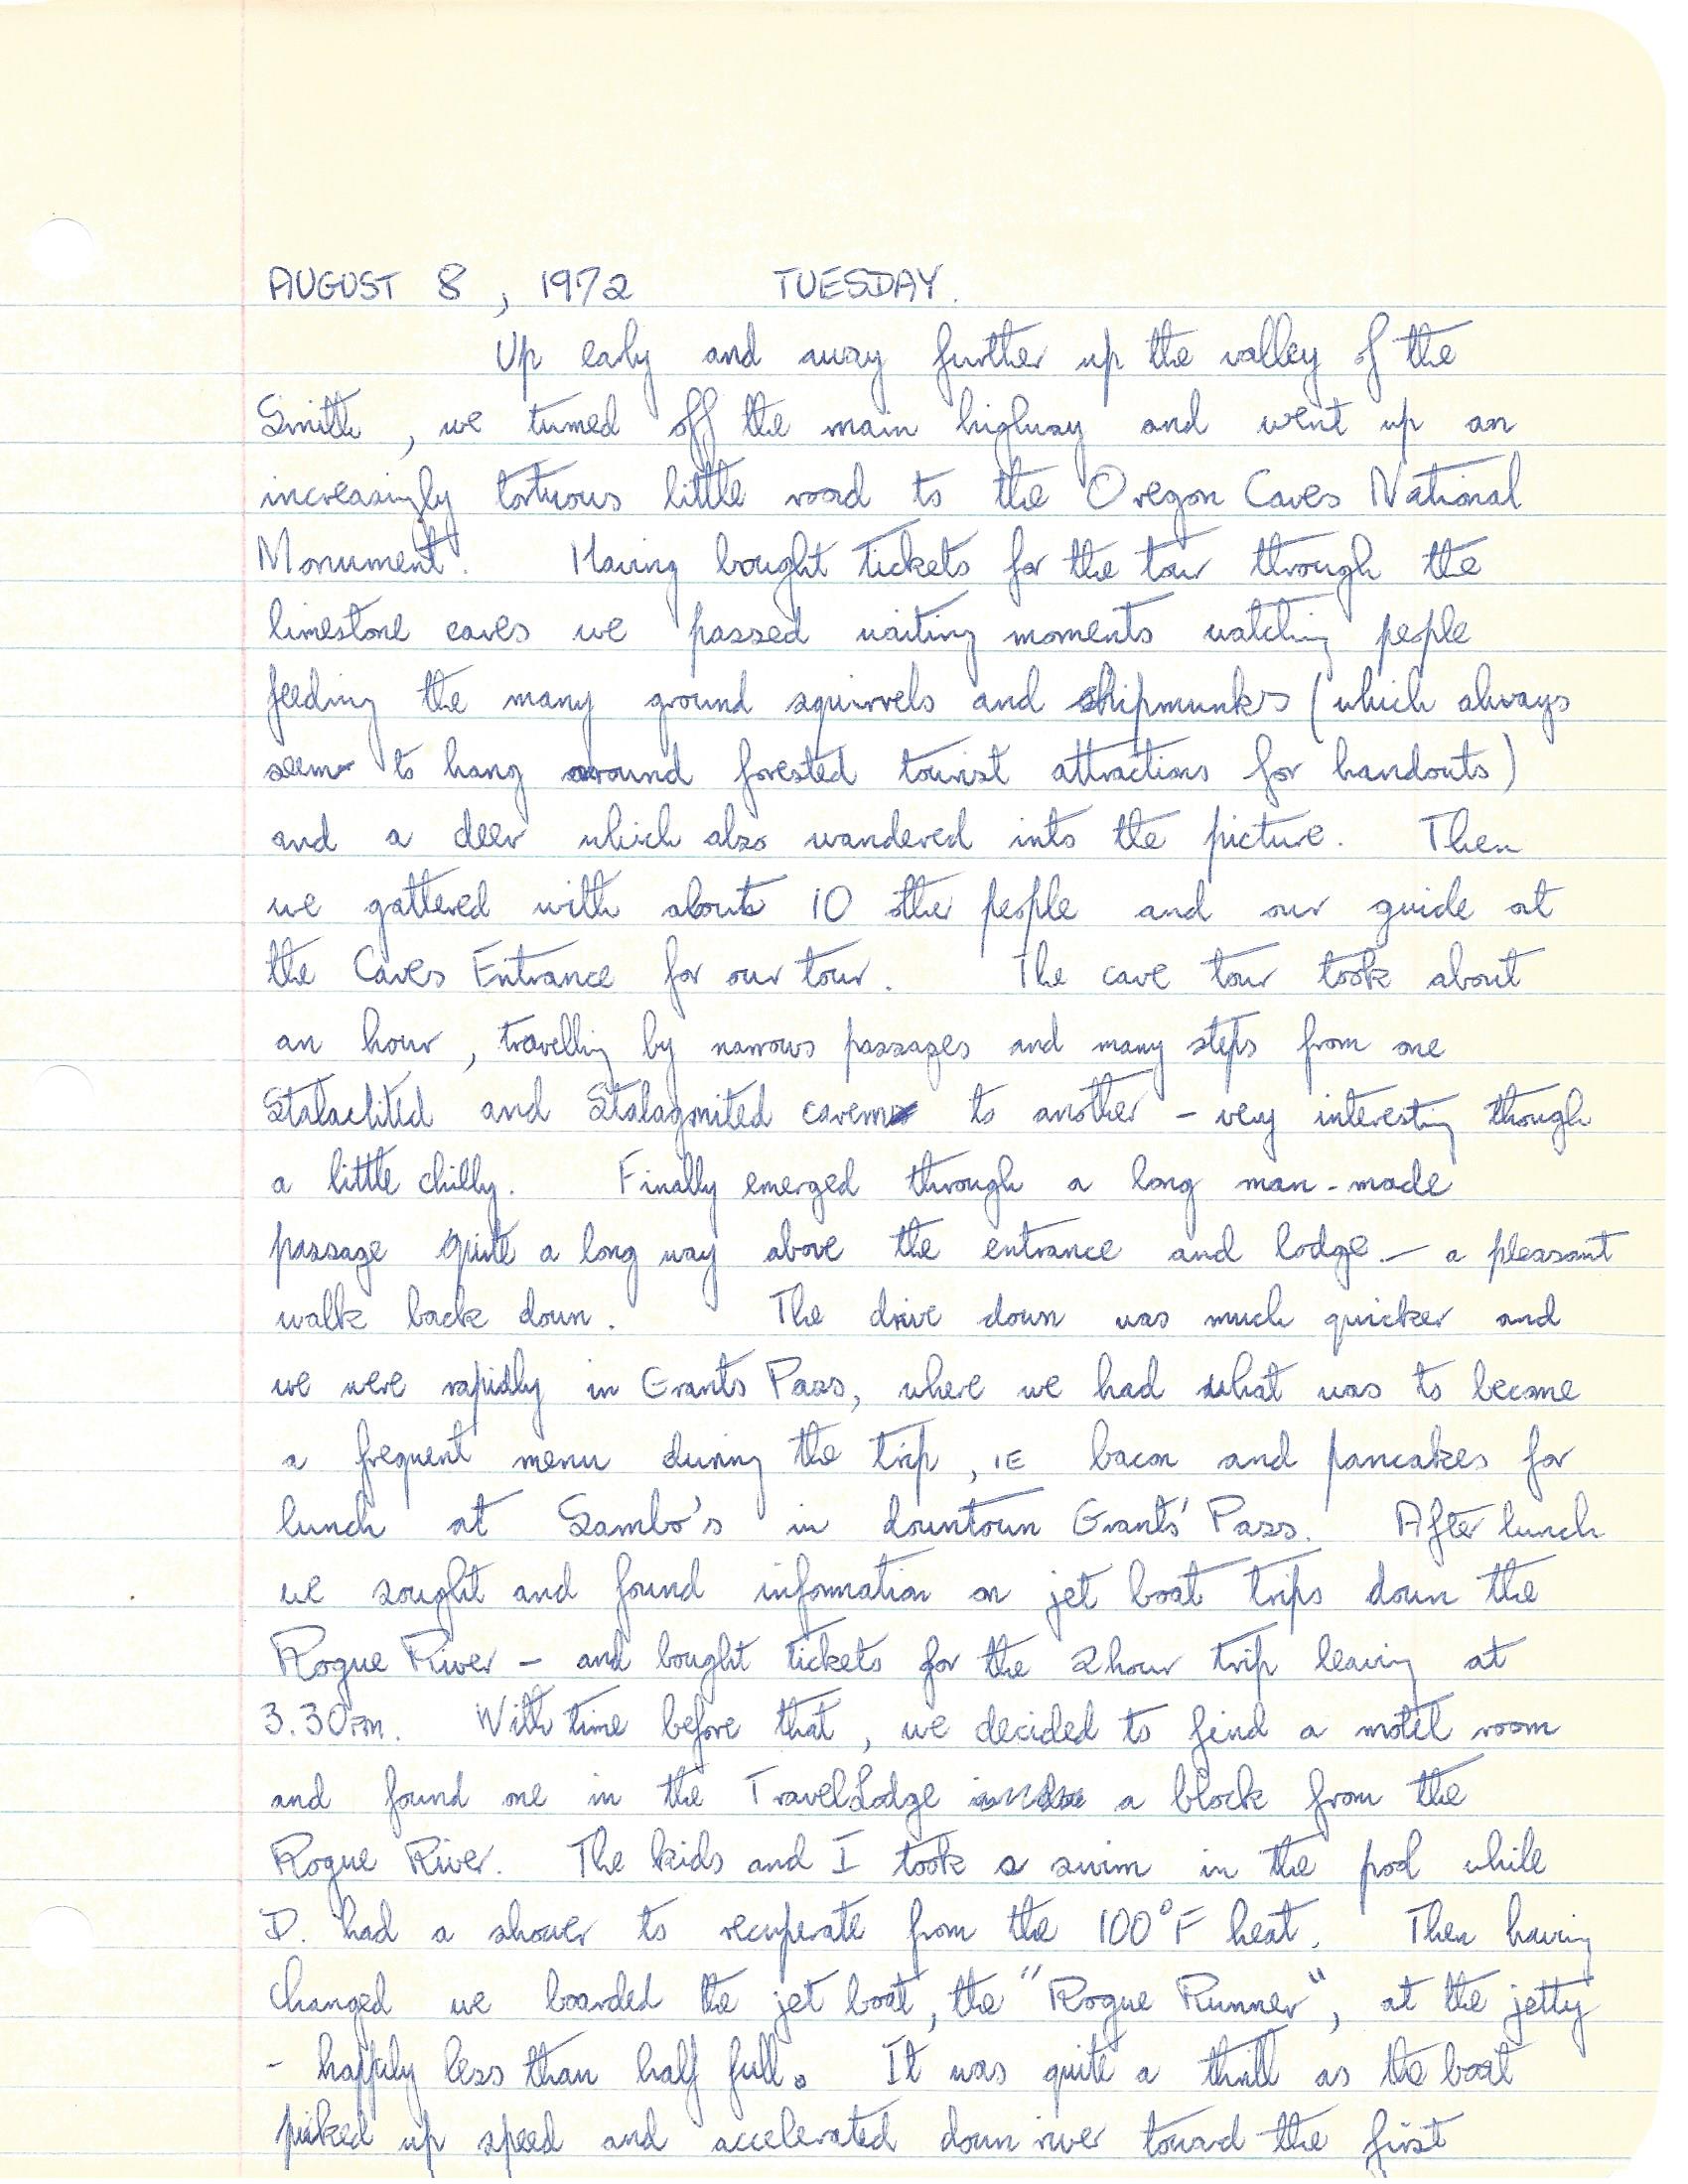 AUGUST 8, 1972 TUESDAY.
Up early and away further up the valley of the
Smith, we turned off the main highway and went up an
increasingly tortuous little road to the Oregon Caves National
Monument. Having bought tickets for the tour through the
limestone caves we passed waiting moments watching people
feeding the many ground squirrels and chipmunks (which always
seem to hang around forested tourist attractions for handouts)
and a deer which also wandered into the picture. Then
we gathered with about 10 other people and our guide at
the Caves Entrance for our tour. The cave tour took about
an hour, travelling by narrow passages and many steps from one
Stalactited and Stalagmited cavern to another - very interesting though
a little chilly. Finally emerged through a long man-made
passage quite a long way above the entrance and lodge. - a pleasant
walk back down. The drive down was much quicker and
we were rapidly in Grants Pass, where we had what was to become
a frequent menu during the trip, IE bacon and pancakes for
lunch at Sambo's in downtown Grants' Pass. After lunch
we sought and found information on jet boat trips down the
Rogue River - and bought tickets for the 2 hour trip leaving at
3.30PM. With time before that, we decided to find a motel room
and found one in the TravelLodge a block from the
Rogue River. The kids and I took a swim in the pool while
D. had a shower to recuperate from the 100°F heat. Then having
changed we boarded the jet boat, the "Rogue Runner", at the jetty
- happily less than half full. It was quite a thrill as the boat
picked up speed and accelerated down river toward the first